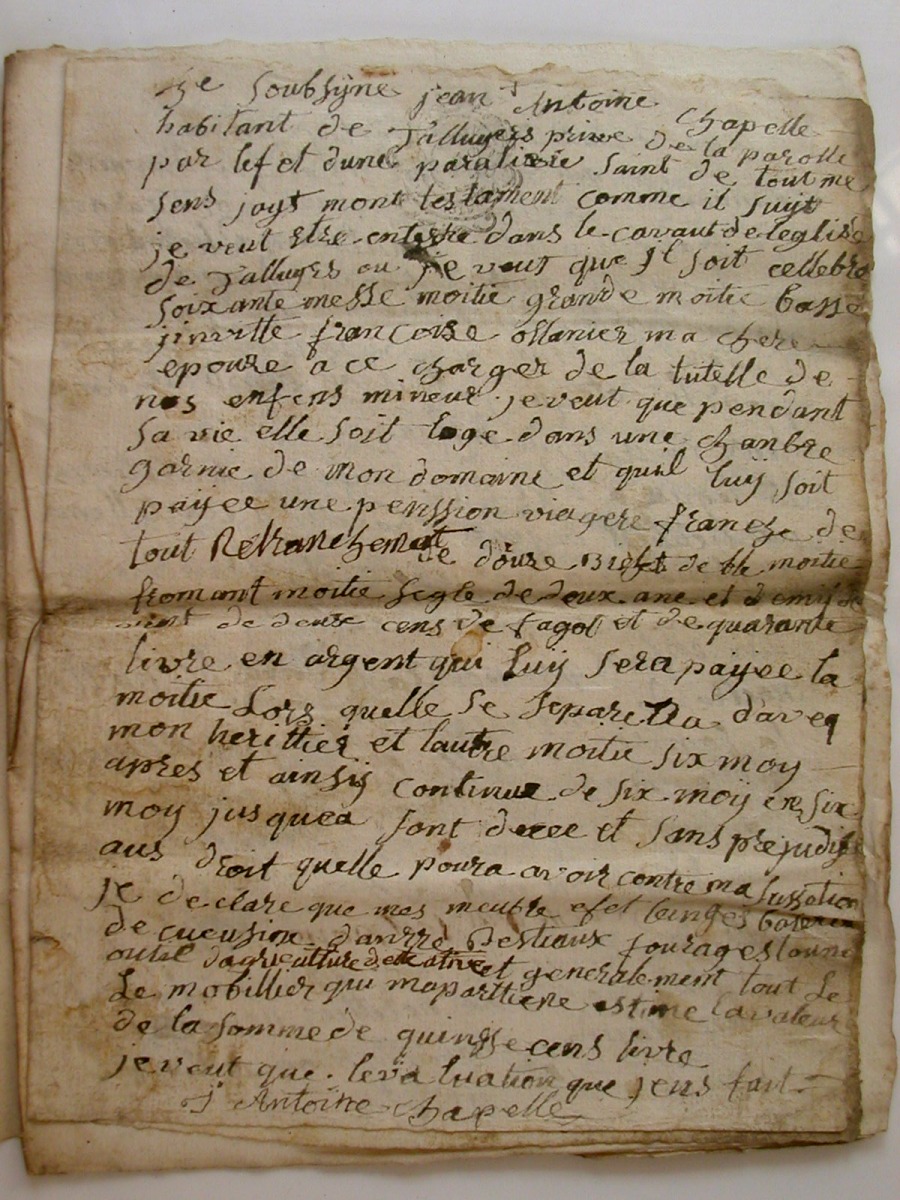 je soubsÿne jean Antoine Chapelle
habitant de Talluyers prive de la parolle
par lefet dune paralisie saint de tout me
sens jayt mont testament comme il suyt
je veut etre enterre dans le cavaut de leglise
de Talluyes ou je veut que jl soit cellebre
soixante messe moitie grande moitie basse
jinvitte francoise ollanier ma chere
epouse a ce charger de la tutelle de
nos enfens mineur je veut que pendant
sa vie elle soit loge dans une chanbre
garnie de mon domaine et quil luy soit
payee une penssion viagere franche de
tout Retranchemat de douze bichet de ble moitie
fromant moitie segle de deux ane et demiÿ de
vint de deux cens de fagot et de quarante
livre en argent qui luÿ sera paÿee la
moitie Lors quelle se separera daveq
mon herittier et lautre moitie six moy
apres et ainsiÿ continue de six moÿ en six
moy jusquea sont decee et sans prejudise
aus droit quelle poura avoir contre ma sussetion
je declare que mes meuble efet linges baterie
de cueusine danrre Bestiaux fourages
outil dagriculture et generalement tout Le
Le mobillier qui mapartiene estime la valeur
de la somme de quinsse cens livre
je veut que levaluation que jens fait
J Antoine chapelle